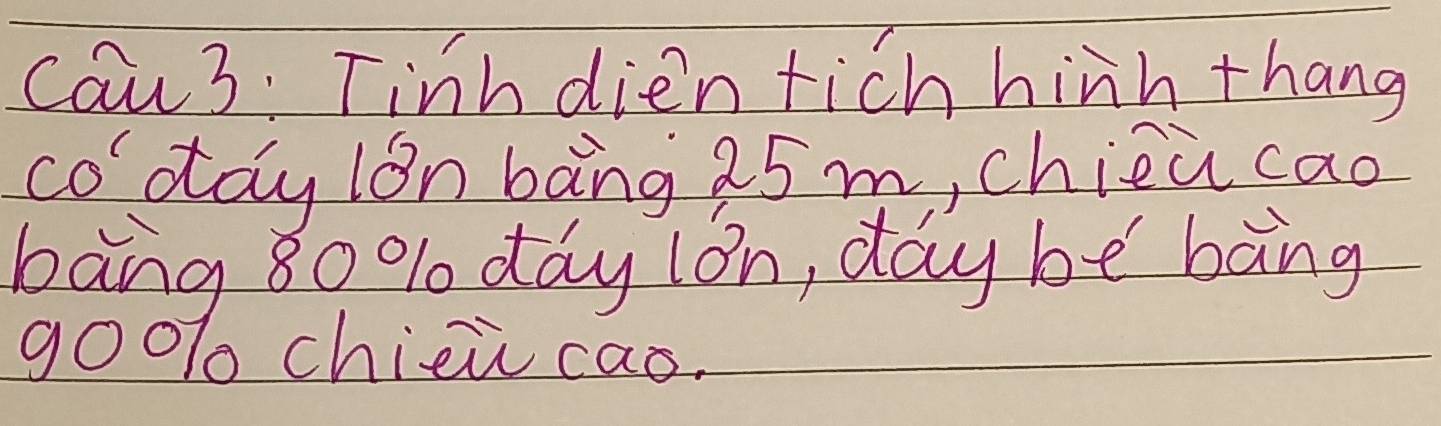 Câu 3: Tính diện tích hình thang
có đáy lớn bằng 25 m, chiều cao
bằng 80% đáy lớn, đáy bé bằng
90% chiều cao.